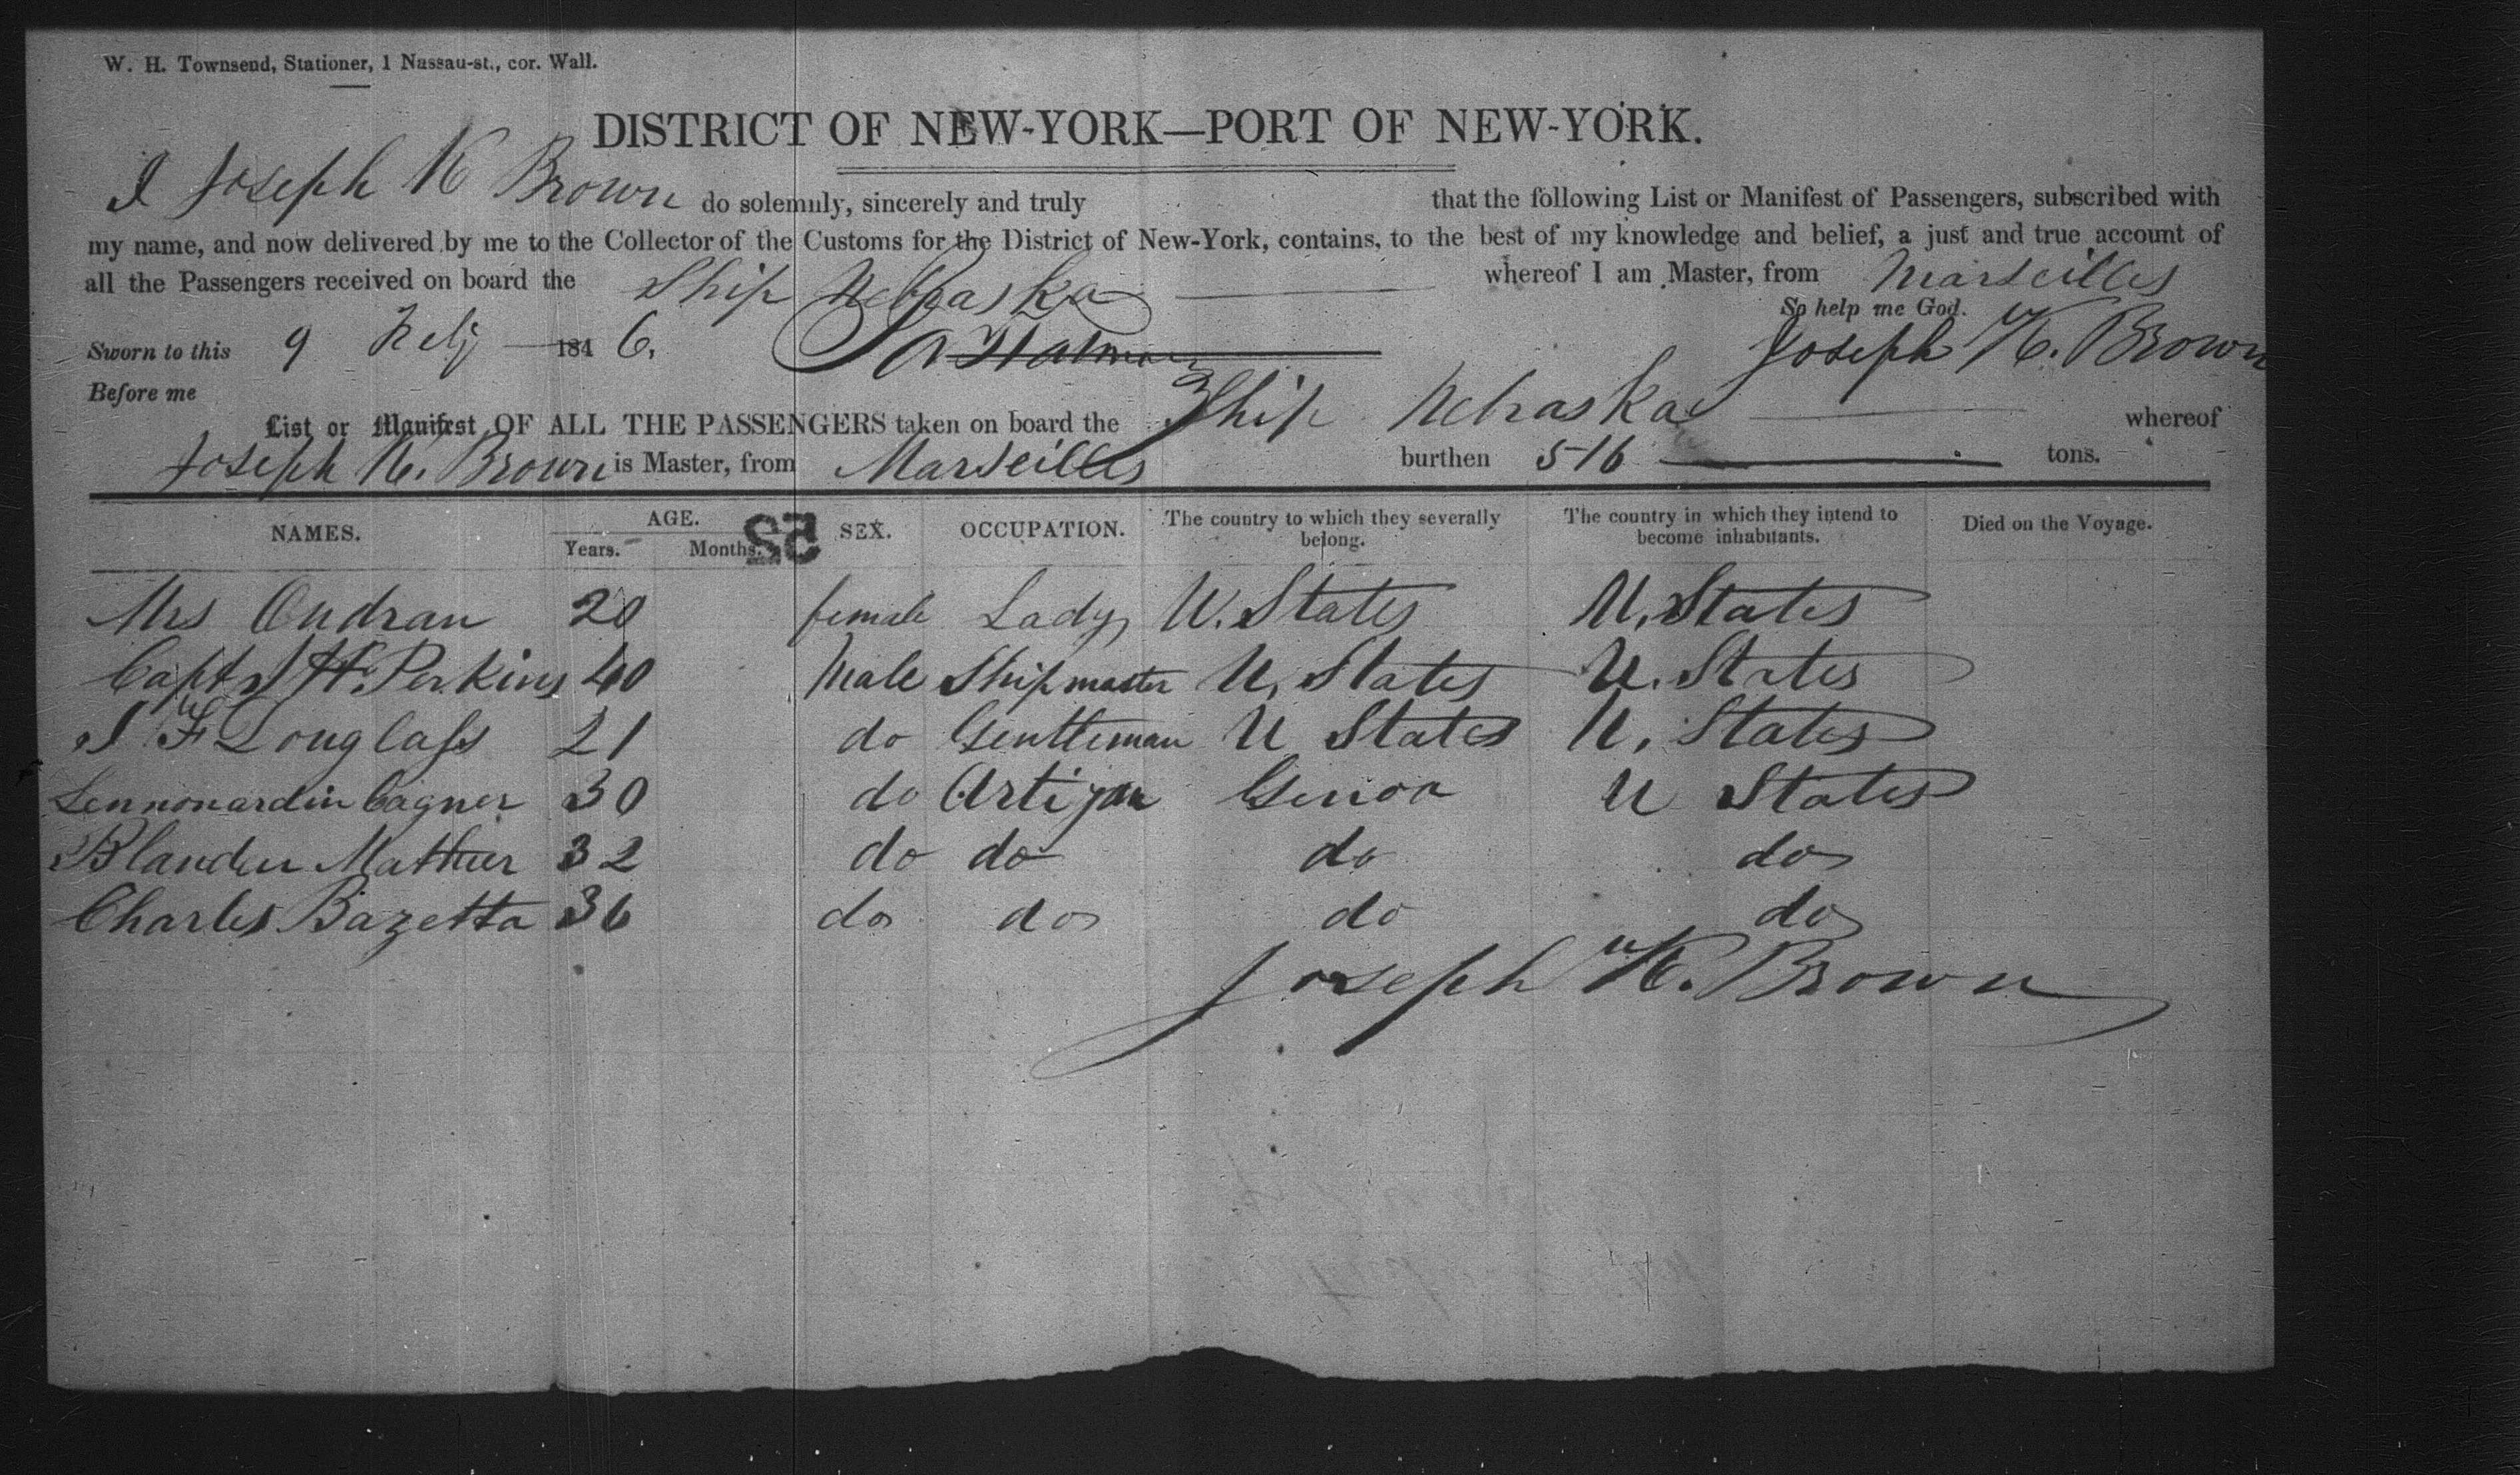 W. H. Townsend, Stationer, 1 Nassau-st., cor. Wall.
DISTRICT OF NEW-YORK—PORT OF NEW-YORK.
I Joseph K Brown do solemnly, sincerely and truly that the following List or Manifest of Passengers, subscribed with
my name, and now delivered by me to the Collector of the Customs for the District of New-York, contains, to the best of my knowledge and belief, a just and true account of
all the Passengers received on board the Ship Nebraska whereof I am Master, from Marseilles
So help me God.
Sworn to this 9 Feby 1846. Joseph K. Brown
Before me
List or Manifest OF ALL THE PASSENGERS taken on board the Ship Nebraska whereof
Joseph K. Brown is Master, from Marseilles burthen 516 tons.
NAMES. AGE. Years. Months. SEX. OCCUPATION. The country to which they severally belong. The country in which they intend to become inhabitants. Died on the Voyage.
52
Mrs Oudran 20 female Lady U. States U. States
Capt J H. Perkins 40 Male Shipmaster U. States U. States
J F Douglass 21 do Gentleman U States U. States
Lennonardin Cagner 30 do Artizan Genoa U States
Mathier 32 do do do do
Charles Bazetta 36 do do do do
Joseph K. Brown